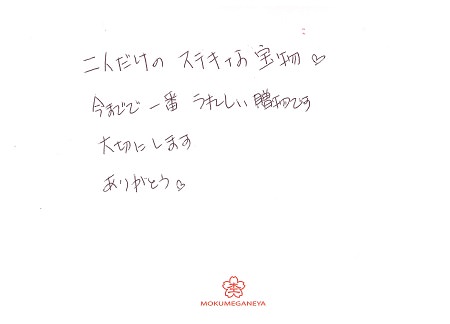 二人だけの ステキな宝物♡
今までで一番 うれしい贈物です
大切にします
ありがとう♡
MOKUMEGANEYA